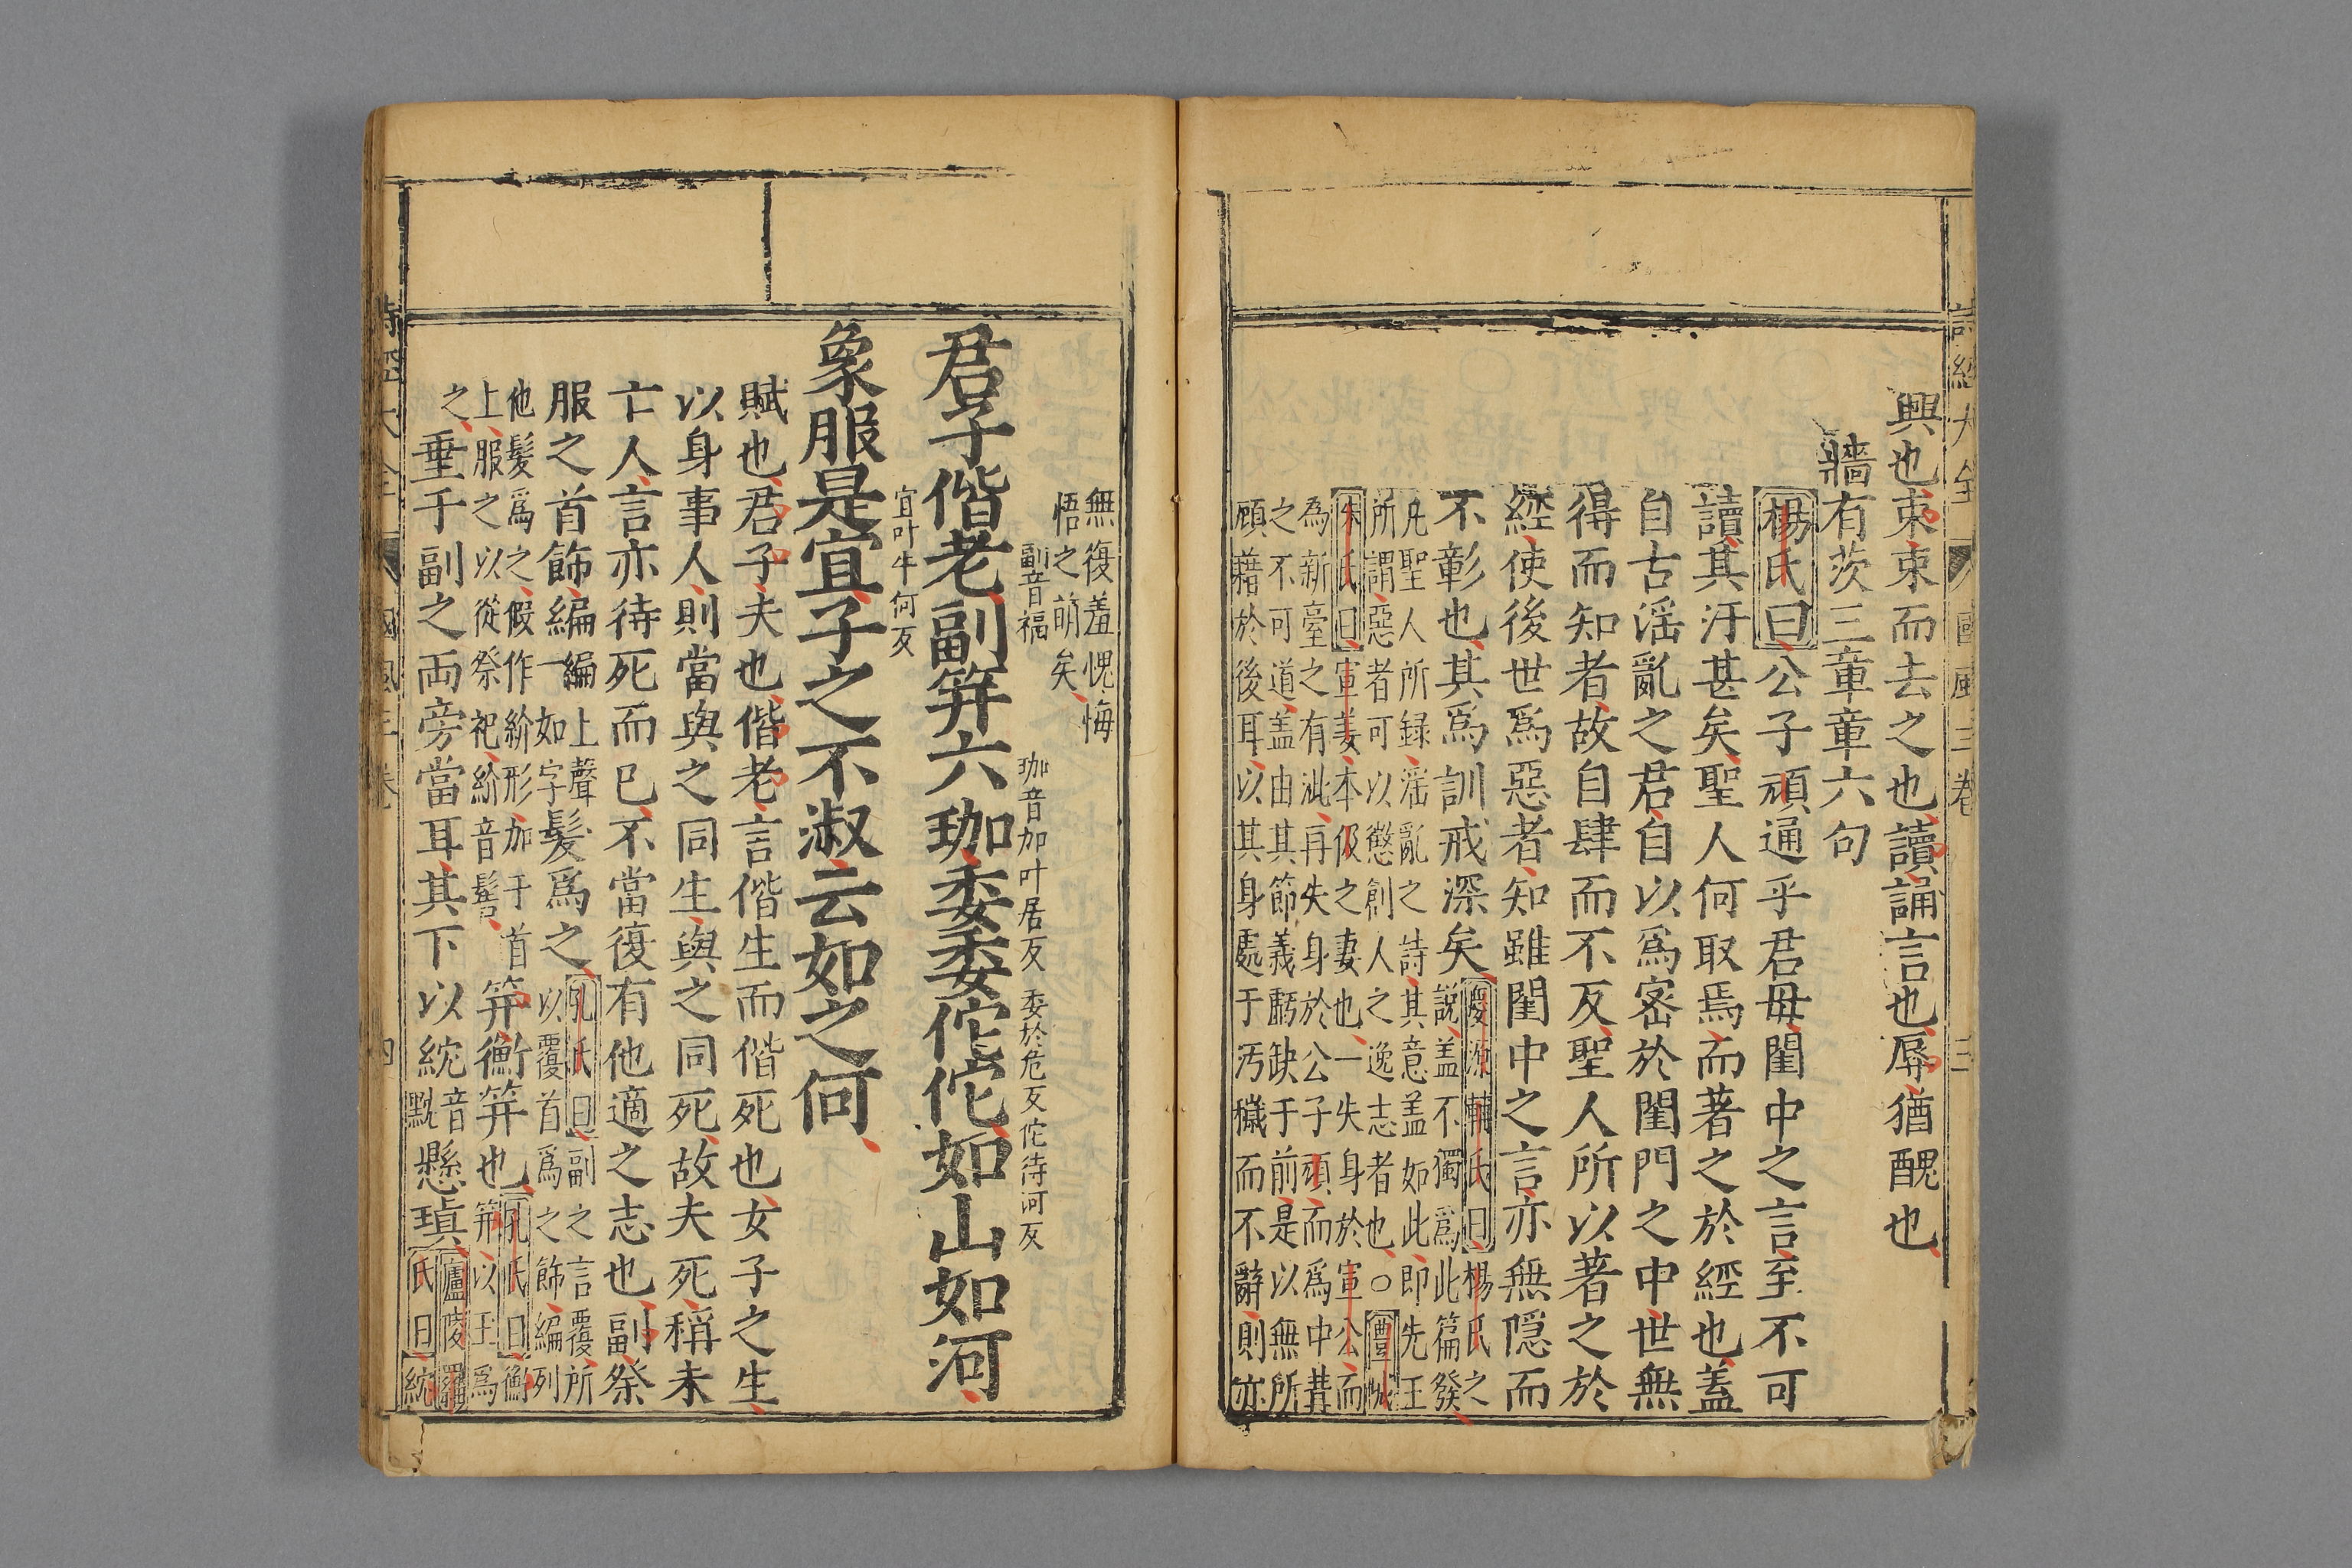 興也束束而去之也讀誦言也辱猶醜也
牆有茨三章章六句
楊氏曰公子頑通乎君母閨中之言至不可
讀其汙甚矣聖人何取焉而著之於經也蓋
自古淫亂之君自以爲密於閨門之中世無
得而知者故自肆而不反聖人所以著之於
經使後世爲惡者知雖閨中之言亦無隱而
不彰也其爲訓戒深矣
慶源輔氏曰楊氏之
說蓋不獨爲此篇發
凡聖人所録淫亂之詩其意蓋如此即先王
所謂惡者可以懲創人之逸志者也○豐城
朱氏曰宣姜本伋之妻也一失身於宣公而
為新臺之有泚再失身於公子頑而爲中冓
之不可道蓋由其節義虧缺于前是以無所
顧藉於後耳以其身處于汚穢而不辭則亦
無復羞愧悔
悟之萌矣
君子偕老副笄六珈委委佗佗如山如河
副音福 珈音加叶居反 委於危反佗待河反
象服是宜子之不淑云如之何
宜叶牛何反
賦也君子夫也偕老言偕生而偕死也女子之生
以身事人則當與之同生與之同死故夫死稱未
亡人言亦待死而已不當復有他適之志也副祭
服之首飾編
編上聲
一如字
髮爲之
孔氏曰副之言覆所
以覆首爲之飾編列
他髮爲之假作紒形加于首
上服之以從祭祀紒音髻
笄衡笄也
孔氏曰衡
笄以玉爲
之
垂于副之兩旁當耳其下以紞
音
黕
懸瑱
廬陵羅
氏曰紞
詩經大全 國風三卷 三
詩經大全 國風三卷 四